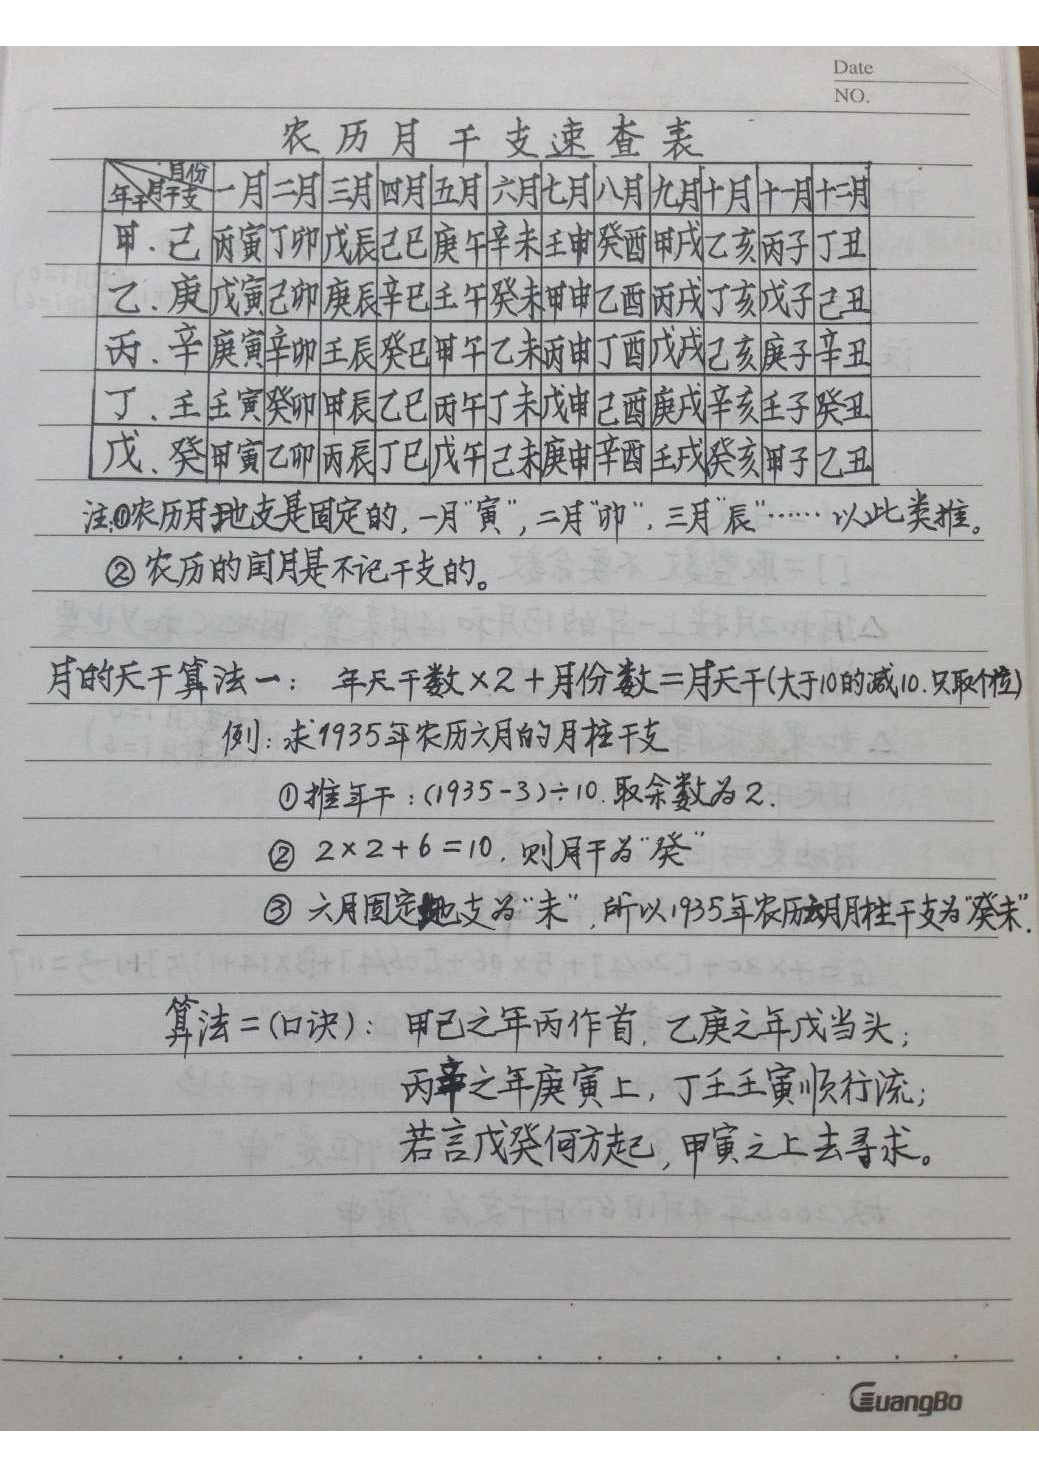 Date
NO.
农历月干支速查表
月份 月干支 年干 一月 二月 三月 四月 五月 六月 七月 八月 九月 十月 十一月 十二月
甲、己 丙寅 丁卯 戊辰 己巳 庚午 辛未 壬申 癸酉 甲戌 乙亥 丙子 丁丑
乙、庚 戊寅 己卯 庚辰 辛巳 壬午 癸未 甲申 乙酉 丙戌 丁亥 戊子 己丑
丙、辛 庚寅 辛卯 壬辰 癸巳 甲午 乙未 丙申 丁酉 戊戌 己亥 庚子 辛丑
丁、壬 壬寅 癸卯 甲辰 乙巳 丙午 丁未 戊申 己酉 庚戌 辛亥 壬子 癸丑
戊、癸 甲寅 乙卯 丙辰 丁巳 戊午 己未 庚申 辛酉 壬戌 癸亥 甲子 乙丑
注:①农历月地支是固定的,一月"寅",二月"卯",三月"辰"……以此类推。
②农历的闰月是不记干支的。
月的天干算法一: 年天干数×2+月份数=月天干(大于10的减10.只取个位)
例:求1935年农历六月的月柱干支
①推年干:(1935-3)÷10.取余数为2.
② 2×2+6=10,则月干为"癸"
③ 六月固定地支为"未",所以1935年农历六月月柱干支为"癸未".
算法二(口诀): 甲己之年丙作首,乙庚之年戊当头;
丙辛之年庚寅上,丁壬壬寅顺行流;
若言戊癸何方起,甲寅之上去寻求。
GuangBo